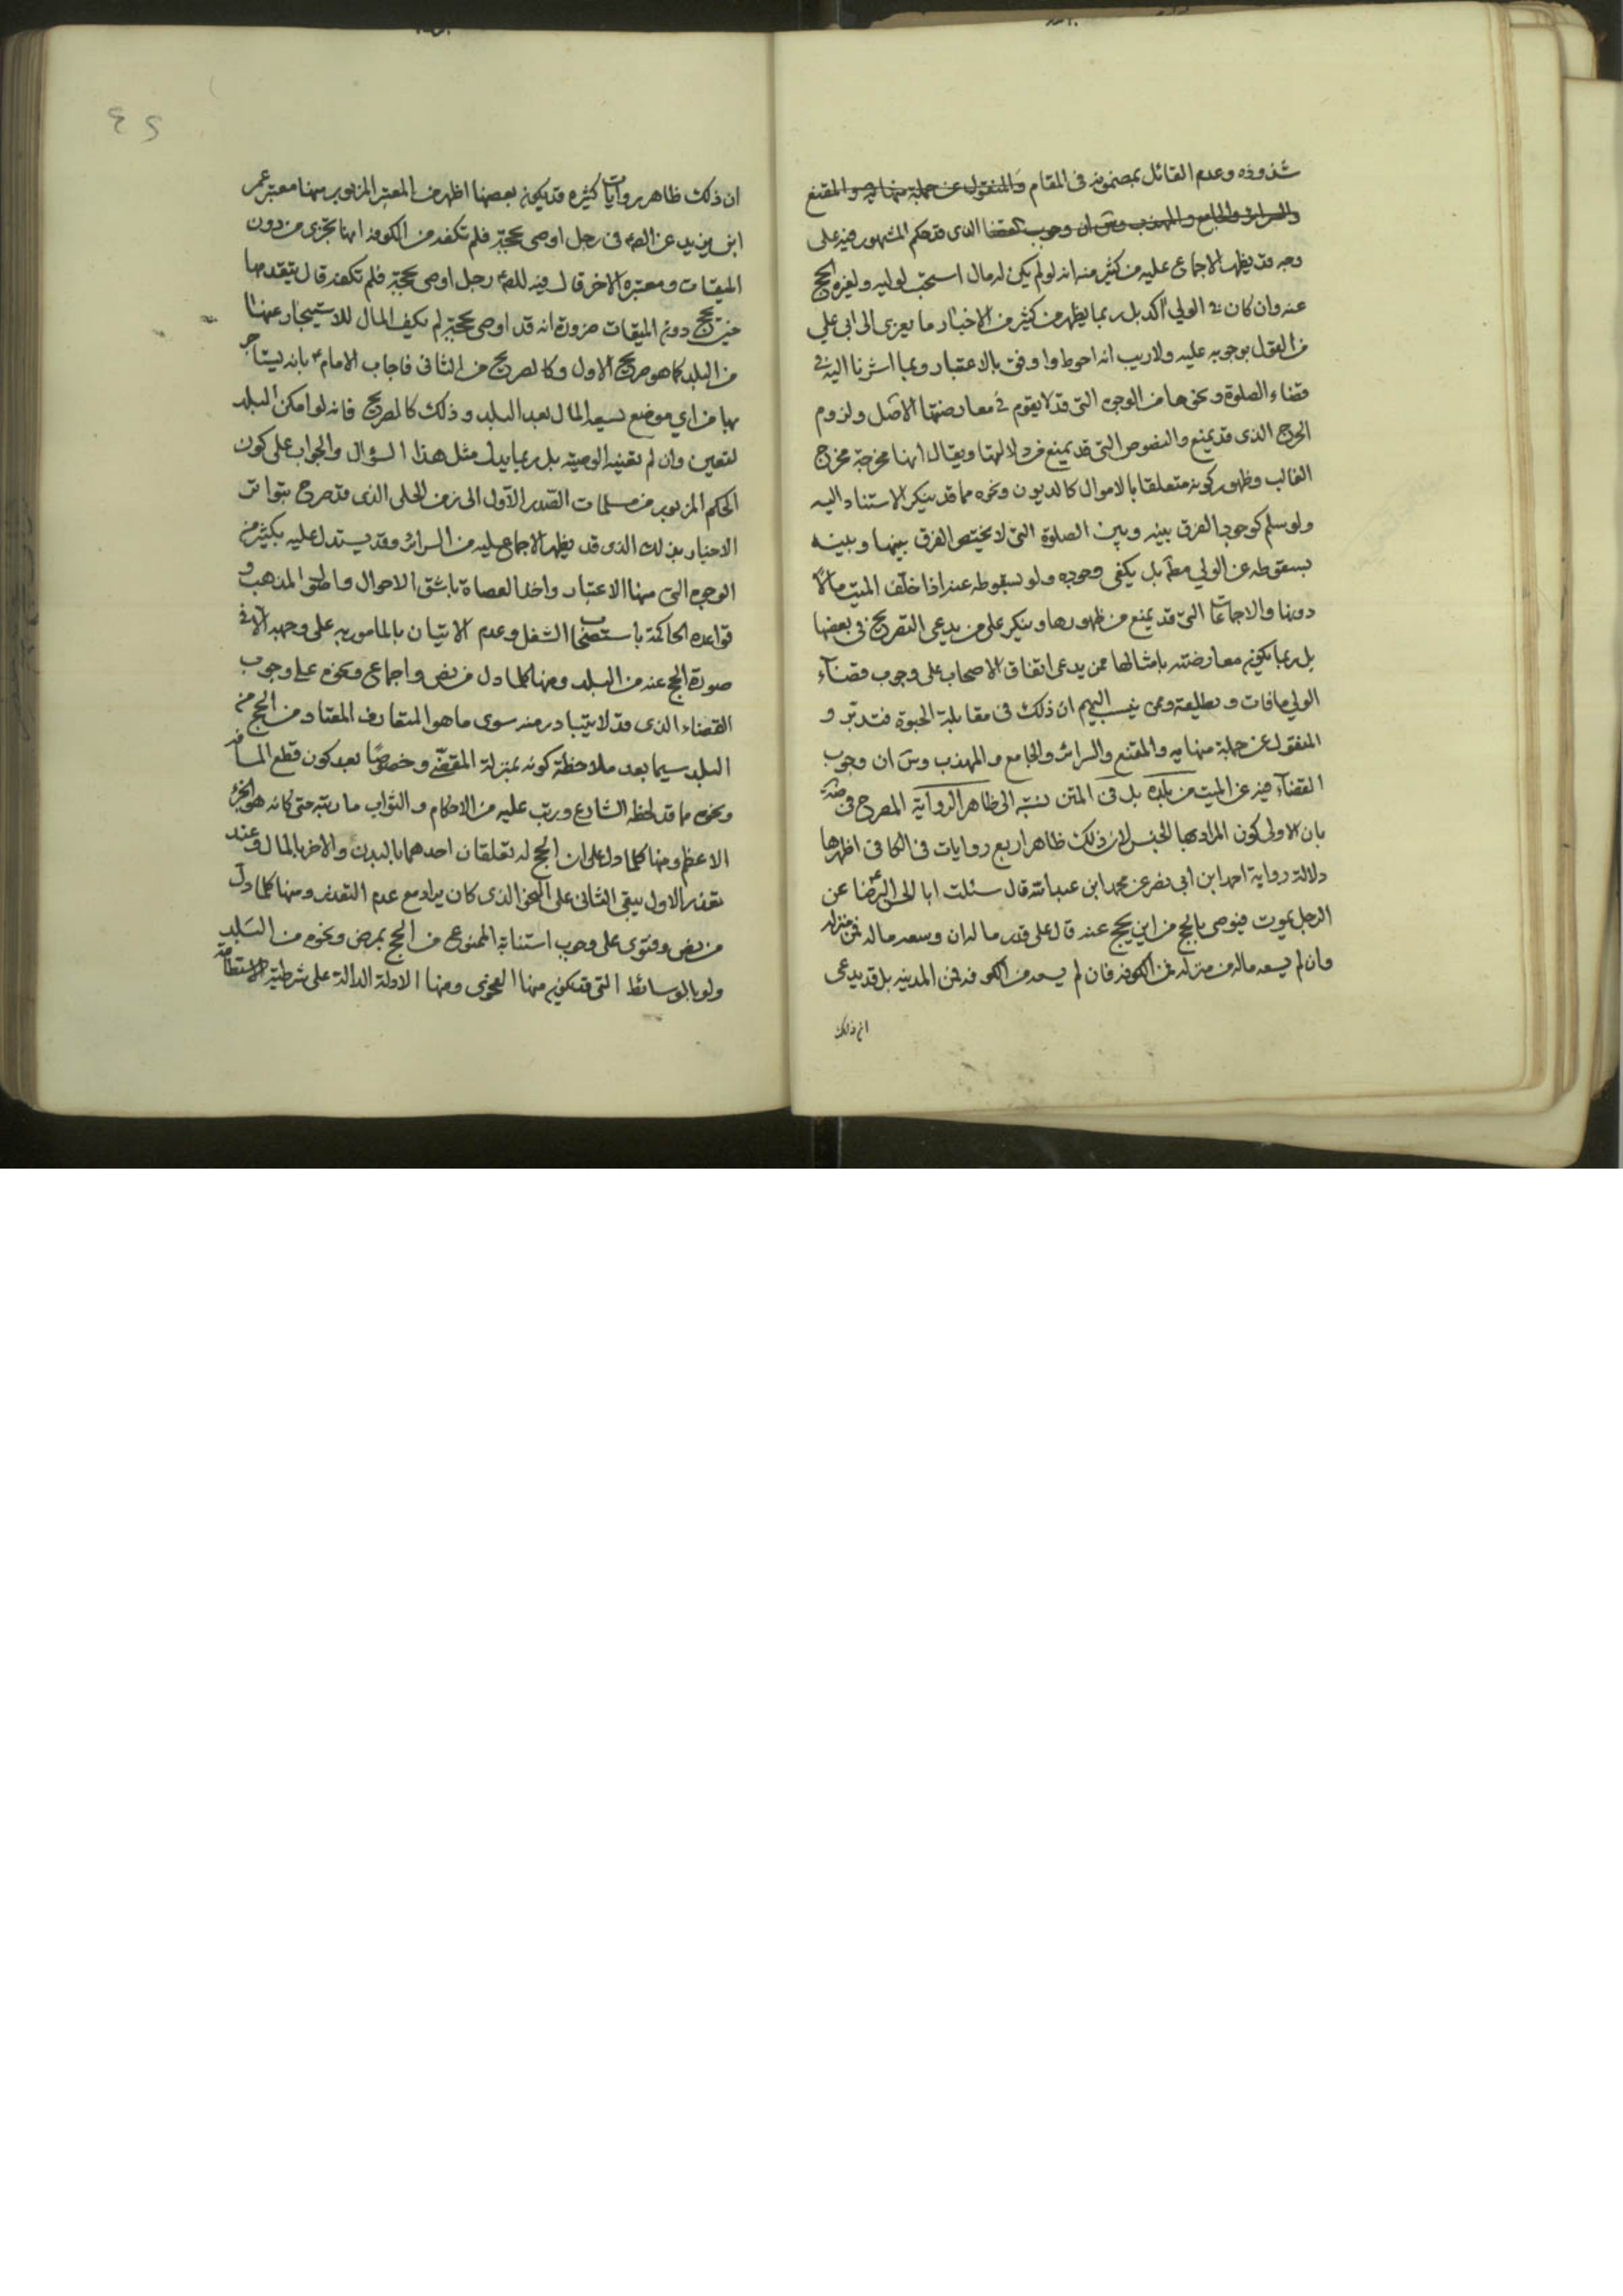 شذوذه وعدم القائل بمضمونه في المقام والمنقول عن جملة منها يه والمقنع
والسرائر والجامع والمهذب وس ان وجوب القضا الذى قد حكم المشهور فيه على
وجه قد يظهر الاجماع عليه من كثير منه انه لو لم يكن له مال استحب لوليه ولغيره الحج
عنه وان كان في الولي اكد بل ربما يظهر من كثير من الاخبار ما يعزى الى ابي علي
من القول بوجوبه عليه ولا ريب انه احوط واوفق بالاعتبار وبما اشرنا اليه في
قضاء الصلوة ونحوها من الوجوه التى قد لا يقوم في معارضتها الاصل ولزوم
الحرج الذى قد يمنع والنصوص التى قد يمنع من دلالتها ويقال انها مخرجة مخرج
الغالب وظهور كونه متعلقا بالاموال كالديون ونحوه مما قد ينكر الاستناد اليه
ولو سلم كوجود الفرق بينه وبين الصلوة التى لا يختص الفرق بينها وبينه
بسقوطه عن الولي مطم بل يكفى وجوبه ولو بسقوطه عنه اذا خلف الميت مالا
دونها والاجماعات التى قد يمنع من ظهورها وينكر على من يدعى التصريح فى بعضها
بل ربما يكون معارضته بامثالها ممن يدعى اتفاق الاصحاب على وجوب قضاء
الولي ما فات و بطليعة وممن ينسب اليهم ان ذلك فى مقابلة الحبوة فتدبر و
المنقول عن جملة منها يه والمقنع والسرائر والجامع والمهذب وس ان وجوب
القضاء فيه عن الميت من بلده بل فى المتن نسبته الى ظاهر الرواية المصرح فى
بان الاولى كون المراد بها الجنس لان ذلك ظاهر اربع روايات فى الكافى اظهرها
دلالة رواية احمد ابن ابي نصر عن محمد ابن عبد الله قال سئلت ابا الحسن الرضا عن
الرجل يموت فيوصى بالحج من اين يحج عنه قال على قدر ماله ان وسعه ماله فمن منزله
وان لم يسعه ماله من منزله فمن الكوفه فان لم يسعه من الكوفه فمن المدينه بل قد يدعى
ان ذلك
ان ذلك ظاهر روايات كثيره قد يكون بعضها اظهر من المعتبر المزبور منها معتبر عمر
ابن يزيد عن الصم فى رجل اوصى بحجة فلم تكفه من الكوفه انها تجزى من دون
الميقات ومعتبره الاخر قال فيه للصم رجل اوصى بحجة فلم تكفه قال يقدمها
حتى يحج دون الميقات ضرورة انه قد اوصى بحجة لم يكف المال للاستيجار عنها
من البلد كما هو صريح الاول وكالصريح من الثانى فاجاب الامام بانه يستاجر
بها من اي موضع يسعه المال بعد البلد وذلك كالصريح فانه لو امكن البلد
لتعين وان لم تعينه الوصيه بل ربما يدل مثل هذا السؤال والجواب على كون
الحكم المزبور من مسلمات الصدر الاول الى زمن الحلى الذى قد صرح بتواتر
الاخبار بذلك الذى قد يظهر الاجماع عليه من السرائر وقد يستدل عليه بكثير من
الوجوه التى منها الاعتبار واخذ العصاة باشق الاحوال واصول المذهب و
قواعده الحاكمة باستصحاب الشغل وعدم الاتيان بالمامور به على وجهه الا فى
صورة الحج عنه من البلد ومنها كلما دل من نص واجماع ونحوه على وجوب
القضاء الذى قد لا يتبادر منه سوى ما هو المتعارف المعتاد من الحج من
البلد سيما بعد ملاحظة كونه بمنزلة المقضى وخصوصا بعد كون قطع المسافة
ونحوه مما قد لحظه الشارع ورتب عليه من الاحكام والثواب ما رتبه حتى كانه هو الجزء
الاعظم ومنها كلما دل على ان الحج له تعلقان احدهما بالبدن والاخر بالمال فعند
تعذر الاول يبقى الثانى على النحو الذى كان يراد مع عدم التعذر ومنها كلما دل
من نص وفتوى على وجوب استنابة الممنوع من الحج بمرض ونحوه من البلد
ولو بالوسائط التى قد يكون منها الفحوى ومنها الادلة الدالة على شرطية الاستطاعة